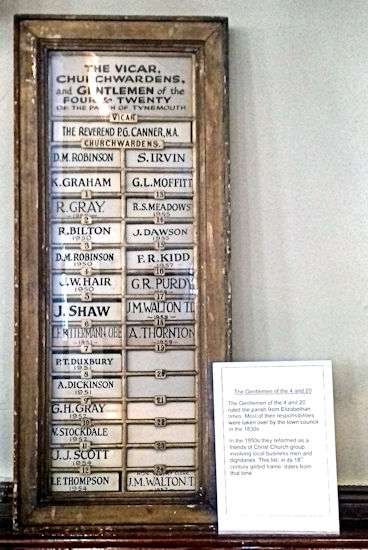 THE VICAR,
CHURCHWARDENS,
and GENTLEMEN of the
FOUR & TWENTY
OF THE PARISH OF TYNEMOUTH
VICAR
THE REVEREND P.G. CANNER, M.A.
CHURCHWARDENS.
D.M. ROBINSON
S. IRVIN
K. GRAHAM
G.L. MOFFITT
1
13
R. GRAY
R.S. MEADOWS
1955
2
14
R. BILTON
1950
J. DAWSON
1955
3
15
D.M. ROBINSON
1950
F.R. KIDD
1957
4
16
J.W. HAIR
1950
G.R. PURDY
5
17
J. SHAW
J.M. WALTON T.D.
1959
6
18
1951
A. THORNTON
7
19
P.T. DUXBURY
1951
8
20
A. DICKINSON
1951
9
21
G.H. GRAY
1952
10
22
W. STOCKDALE
1952
11
23
J.J. SCOTT
1954
12
24
F. THOMPSON
1954
J.M. WALTON T.D.
The Gentlemen of the 4 and 20
The Gentlemen of the 4 and 20
ruled the parish from Elizabethan
times. Most of their responsibilities
were taken over by the town council
in the 1830s.
In the 1950s they reformed as a
friends of Christ Church group
involving local business men and
dignitaries. This list, in its 18th
century gilded frame, dates from
that time